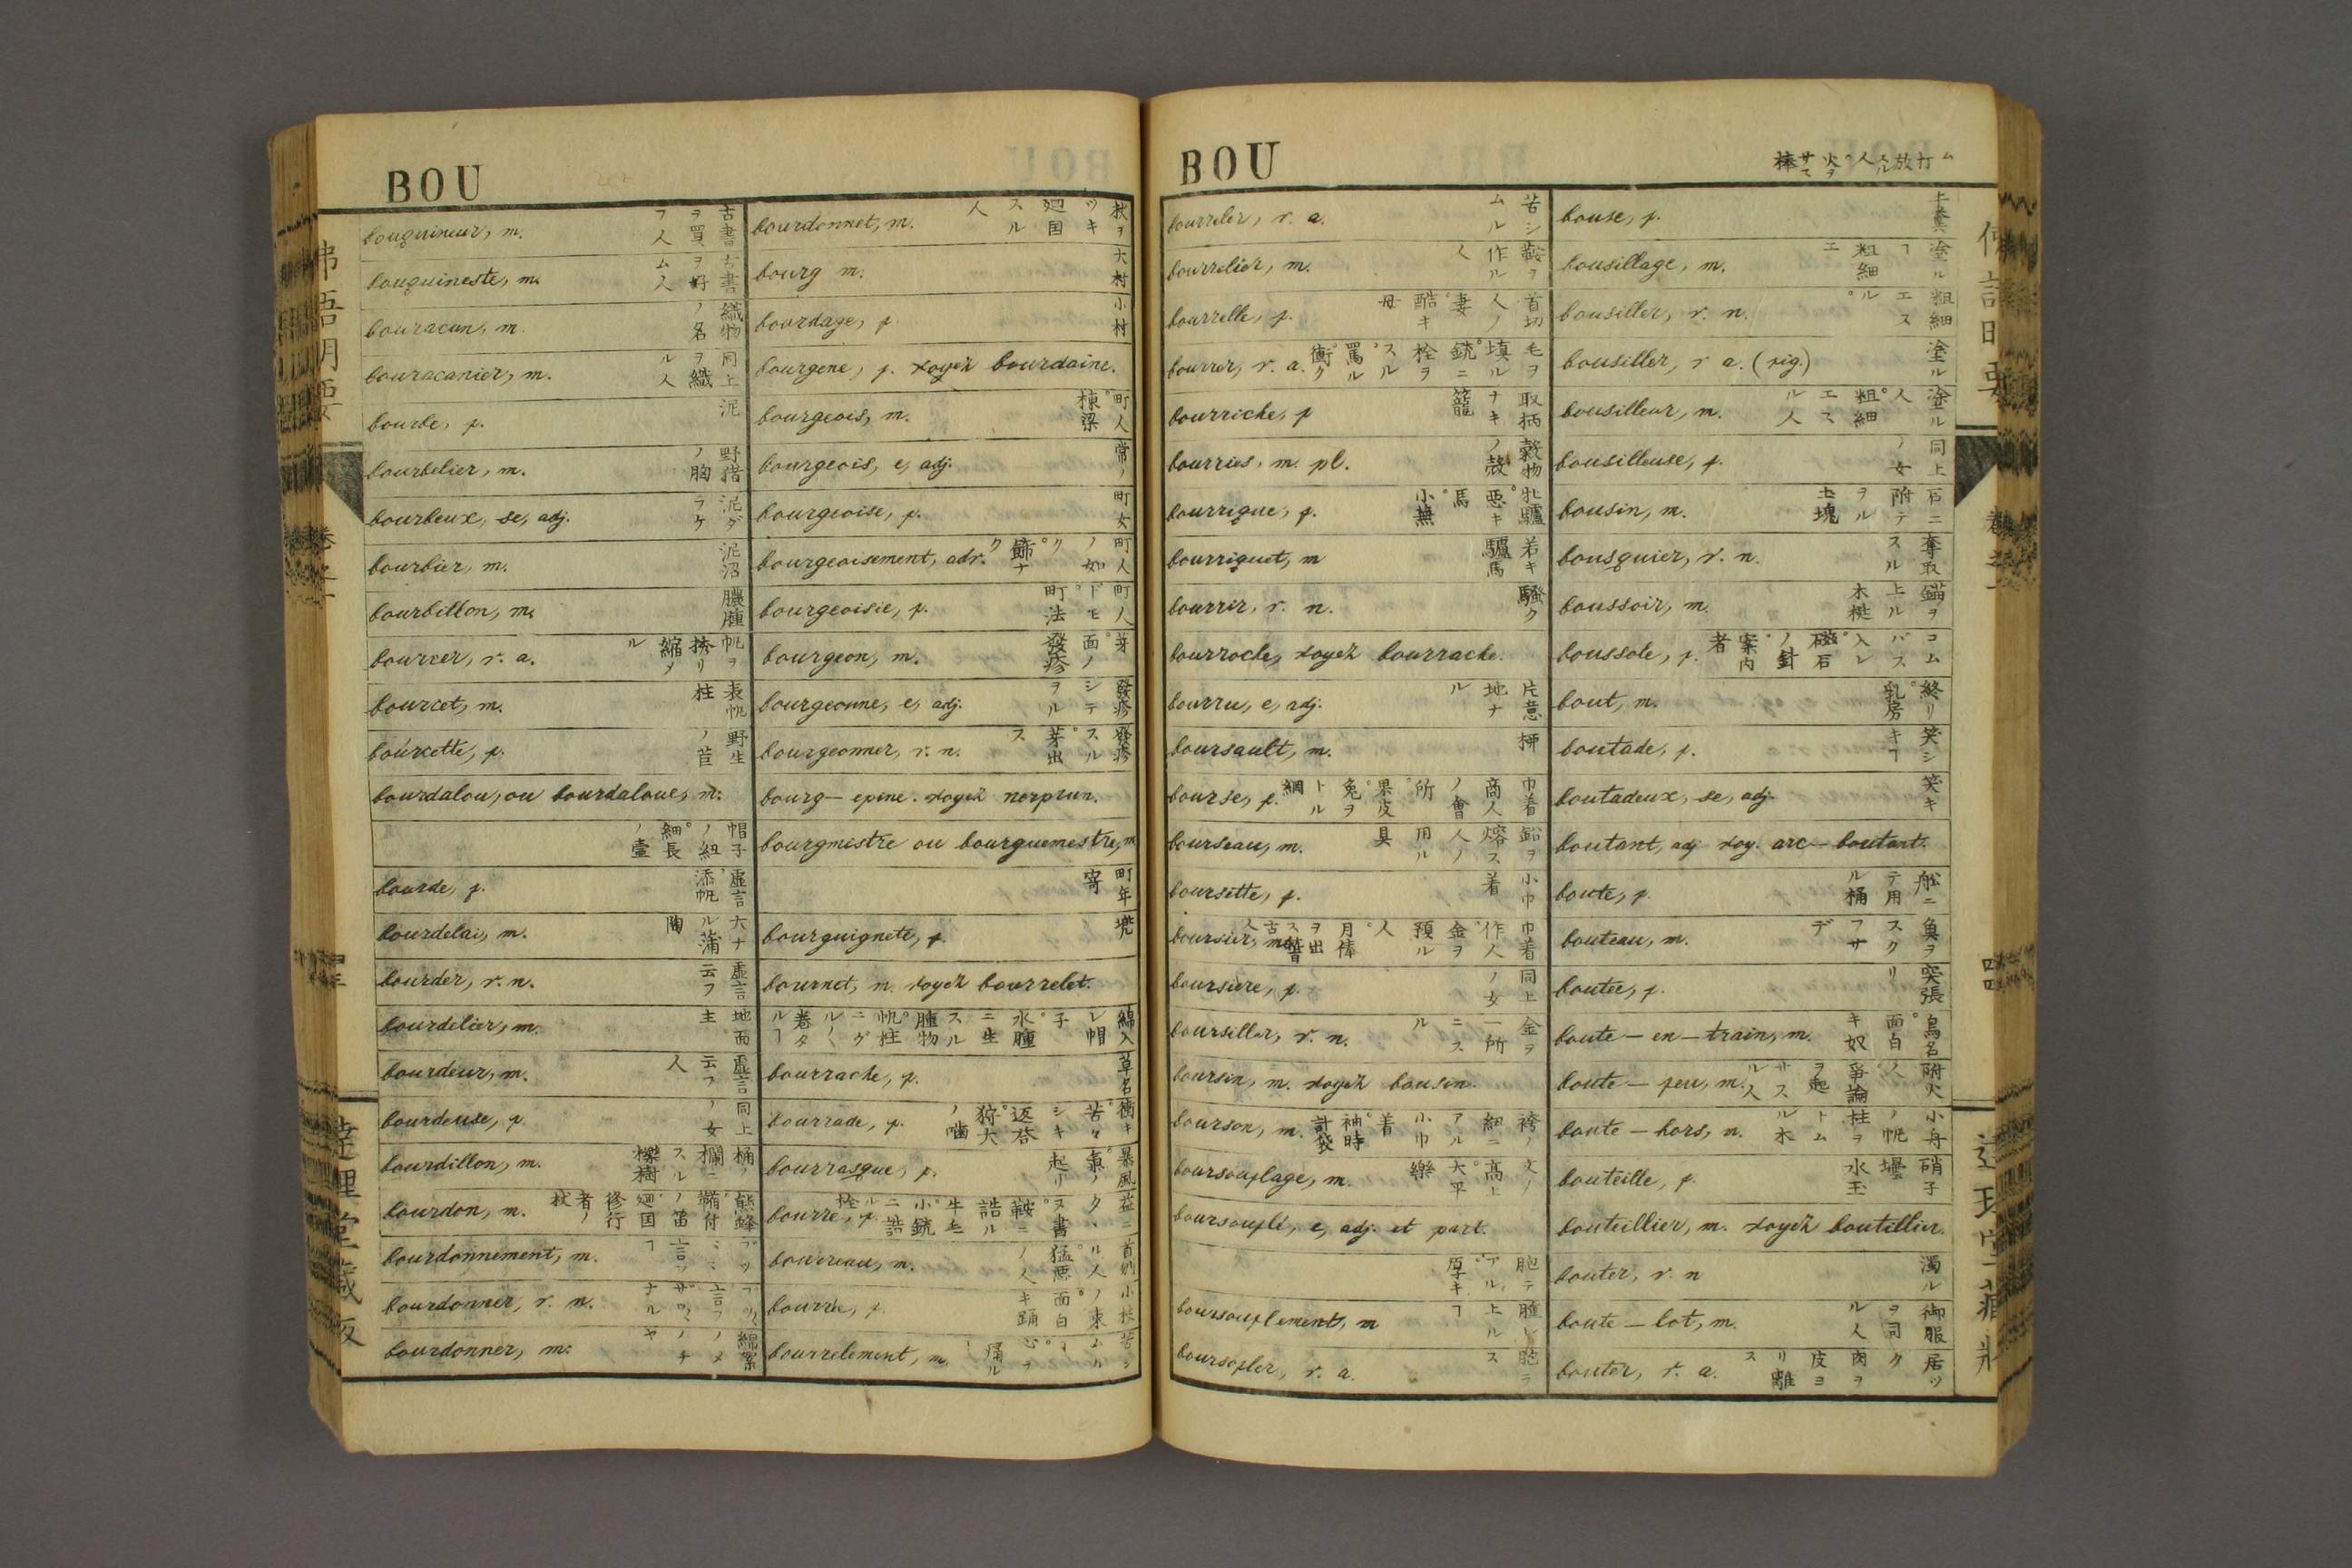 BOU
bouquineur, m. 古書ヲ買フ人
bouquineste, m. 古書ヲ好ム人
bouracan, m. 織物ノ名
bouracanier, m. 同上ヲ織ル人
bourbe, f. 泥
bourbelier, m. 野猪ノ胸
bourbeux, se, adj. 泥ダラケ
bourbier, m. 泥沼
bourbillon, m. 膿腫
bourcer, v. a. 帆ヲ縮メル
bourcet, m. 表帆柱
bourcette, f. 野生ノ苣
bourdalou, ou bourdaloue, m.
帽子ノ紐゜細長ノ壷
bourde, f. 虚言゜添帆
bourdelai, m. 大ナル蒲
bourder, v. n. 虚言云フ
bourdelier, m. 地面主
bourdeur, m. 虚言云フ人
bourdeuse, f. 同上ノ女
bourdillon, m. 桶ノ欄ニスル樹
bourdon, m. 熊蜂
bourdonnement, m.
bourdonner, v. n.
bourdonner, m.
bourdonnet, m. 杖ヲツキ廻国スル人
bourg m. 大村
bourdage, f. 小村
bourgene, f. voyez bourdaine.
bourgeois, m. 町人゜棟梁
bourgeois, e, adj. 常ノ
bourgeoise, f. 町女
bourgeoisement, adv. 町人ノ如ク゜飾ナク
bourgeoisie, f. 町人ドモ゜町法
bourgeon, m. 芽゜面ノ發疹
bourgeonne, e, adj. 發疹シテヲル
bourgeonner, v. n. 發疹スル゜芽出ス
bourg-epine. voyez nerprun.
bourgmestre ou bourguemestre, m
町年寄
bourguignete, f. 兜
bournet, m. voyez bourrelet.
綿入レ帽子゜水腫ニ生スル腫物゜帆柱ニグルル巻タルヿ
bourrache, f. 草名
bourrade, f. 衝キ゜苦々シキ返答゜狩犬ノ噛
bourrasque, f. 暴風゜氣ノ起リ
bourre, f.
bourreau, m. 首切ル人゜猛悪ノ人
bourrée, f. 小枝ノ束゜面白キ踊
bourrelement, m. 苦シムルヿ゜心ヲ痛ル
BOU
棒サス火ヲ人スル放打ム
bourreler, v. a. 苦シムル
bourrelier, m. 鞍ヲ作ル人
bourrelle, f. 首切人ノ妻゜酷キ母
bourrer, v. a. 毛ヲ填ル゜銃ニ栓ヲスル゜罵ル゜衝ク
bourriche, f 取柄ナキ籠
bourries, m. pl. 穀物ノ殻
bourrique, f. 牝驢゜悪キ馬゜小無
bourriquet, m 若キ驢馬
bourrir, v. n. 騒ク
bourroche, voyez bourrache.
bourru, e, adj. 片意地ナル
boursault, m. 柳
bourse, f. 巾着゜商人ノ會所゜果皮゜兔ヲトル網
bourseau, m. 鉛ヲ熔ス人ノ用ル具
boursette, f. 小巾着
boursier, m. 巾着作人゜金ヲ預ル人゜月俸ヲ出ス
boursiere, f. 同上ノ女
boursiller, v. n. 金ヲ一所ニスル
boursin, m. voyez bousin.
bourson, m. 袴ノ細ニアル小巾着゜袖時計袋
boursouflage, m. 文ノ高上゜大平樂
boursouflé, e, adj. et part.
胞テアル゜厚キ
boursouflement, m 腫レ上ルヿ
boursofler, v. a. 胞ラス
bouse, f. 牛糞
bousillage, m. 塗ルヿ゜粗細エ
bousiller, v. n. 粗細エスル゜
bousiller, v a. (fig.) 塗ル
bousilleur, m. 塗ル人゜粗細エスル人
bousilleuse, f. 同上ノ女
bousin, m. 石ニ附テヲル土塊
bousquier, v. n. 奪取スル
boussoir, m. 錨ヲ上ル木梃
boussole, f. コムパス゜磁石ノ針゜案内者
bout, m. 終リ゜乳房
boutade, f. 笑シキヿ
boutadeux, se, adj. 笑キ
boutant, adj voy. arc-boutant.
boute, f. 舩ニテ用ル桶
bouteau, m. 魚ヲスクフサデ
boutée, f. 突張リ
boute-en-train, m. 鳥名゜面白キ奴
boute-feu, m. 附火人゜爭論ヲ起サスル人
boute-hors, m. 小舟ノ帆柱ヲトムル木
bouteille, f. 硝子壜゜水玉
bouteillier, m. voyez boutillier.
bouter, v. n 濁ル
boute-lot, m. 御服ヲ司ル人
bouter, v. a. 居ツク゜肉ヲ皮ヨリ離ス